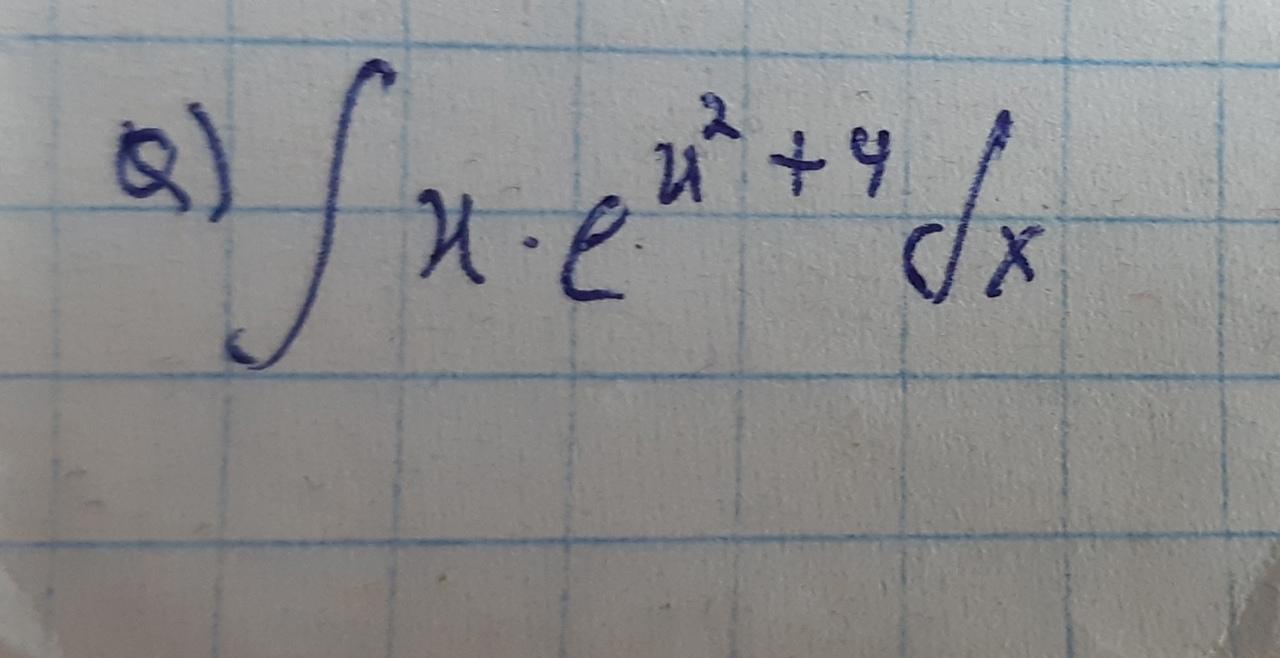 Q) ∫ x · e^{x² + 4} dx